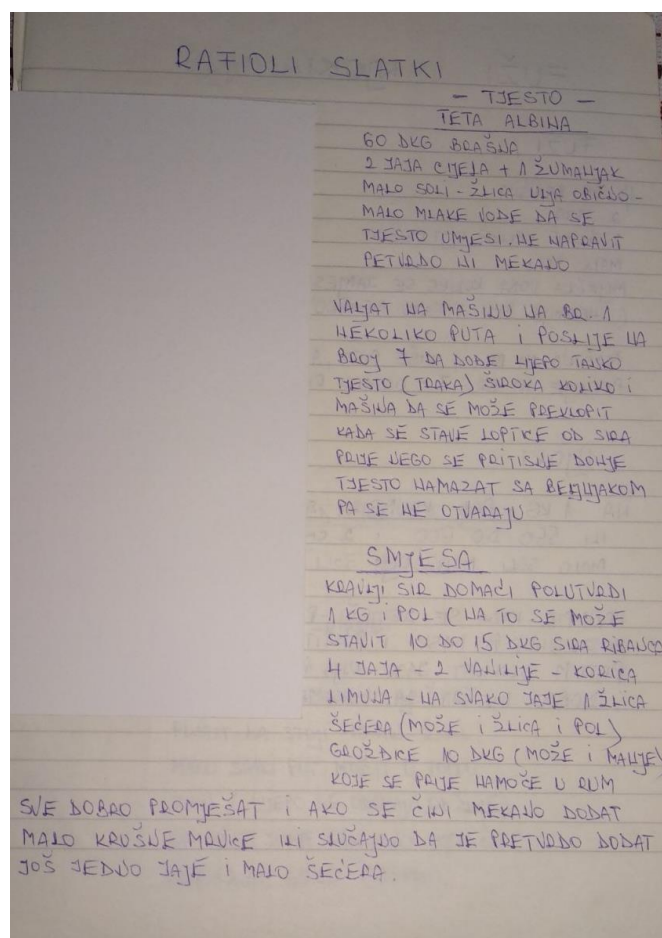 RAFIOLI SLATKI
- TJESTO -
TETA ALBINA
60 DKG BRAŠNA
2 JAJA CIJELA + 1 ŽUMANJAK
MALO SOLI - ŽLICA ULJA OBIČNO -
MALO MLAKE VODE DA SE
TJESTO UMJESI. NE NAPRAVIT
PETVRDO NI MEKANO
VALJAT NA MAŠINU NA BR. 1
NEKOLIKO PUTA I POSLIJE NA
BROJ 7 DA DOĐE LIJEPO TANKO
TJESTO (TRAKA) ŠIROKA KOLIKO I
MAŠINA DA SE MOŽE PREKLOPIT
KADA SE STAVE LOPTICE OD SIRA
PRIJE NEGO SE PRITISNE DONJE
TJESTO NAMAZAT SA BELJNJAKOM
PA SE NE OTVARAJU
SMJESA
KRAVLJI SIR DOMAĆI POLUTVRDI
1 KG I POL (NA TO SE MOŽE
STAVIT 10 DO 15 DKG SIRA RIBANCA
4 JAJA - 2 VANILIJE - KORICA
LIMUNA - NA SVAKO JAJE 1 ŽLICA
ŠEĆERA (MOŽE I ŽLICA I POL)
GROŽĐICE 10 DKG (MOŽE I MANJE)
KOJE SE PRIJE NAMOČE U RUM
SVE DOBRO PROMJEŠAT I AKO SE ČINI MEKANO DODAT
MALO KRUŠNE MRVICE ILI SLUČAJNO DA JE PRETVRDO DODAT
JOŠ JEDNO JAJE I MALO ŠEĆERA.